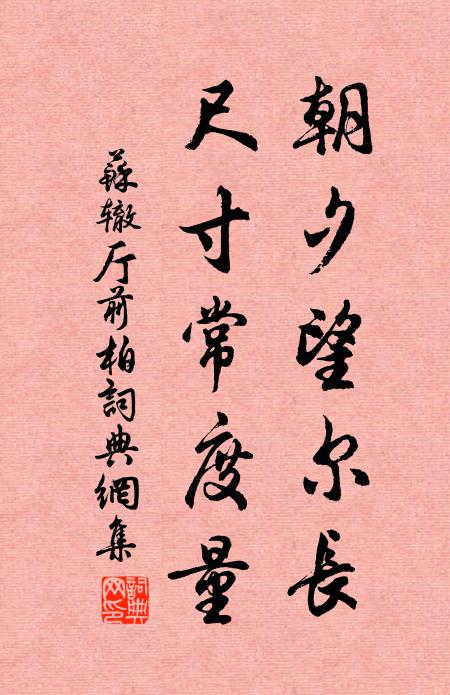 朝夕望尔長
尺寸常度量
蘇辙厅前柏詞典網集
詞典
网印